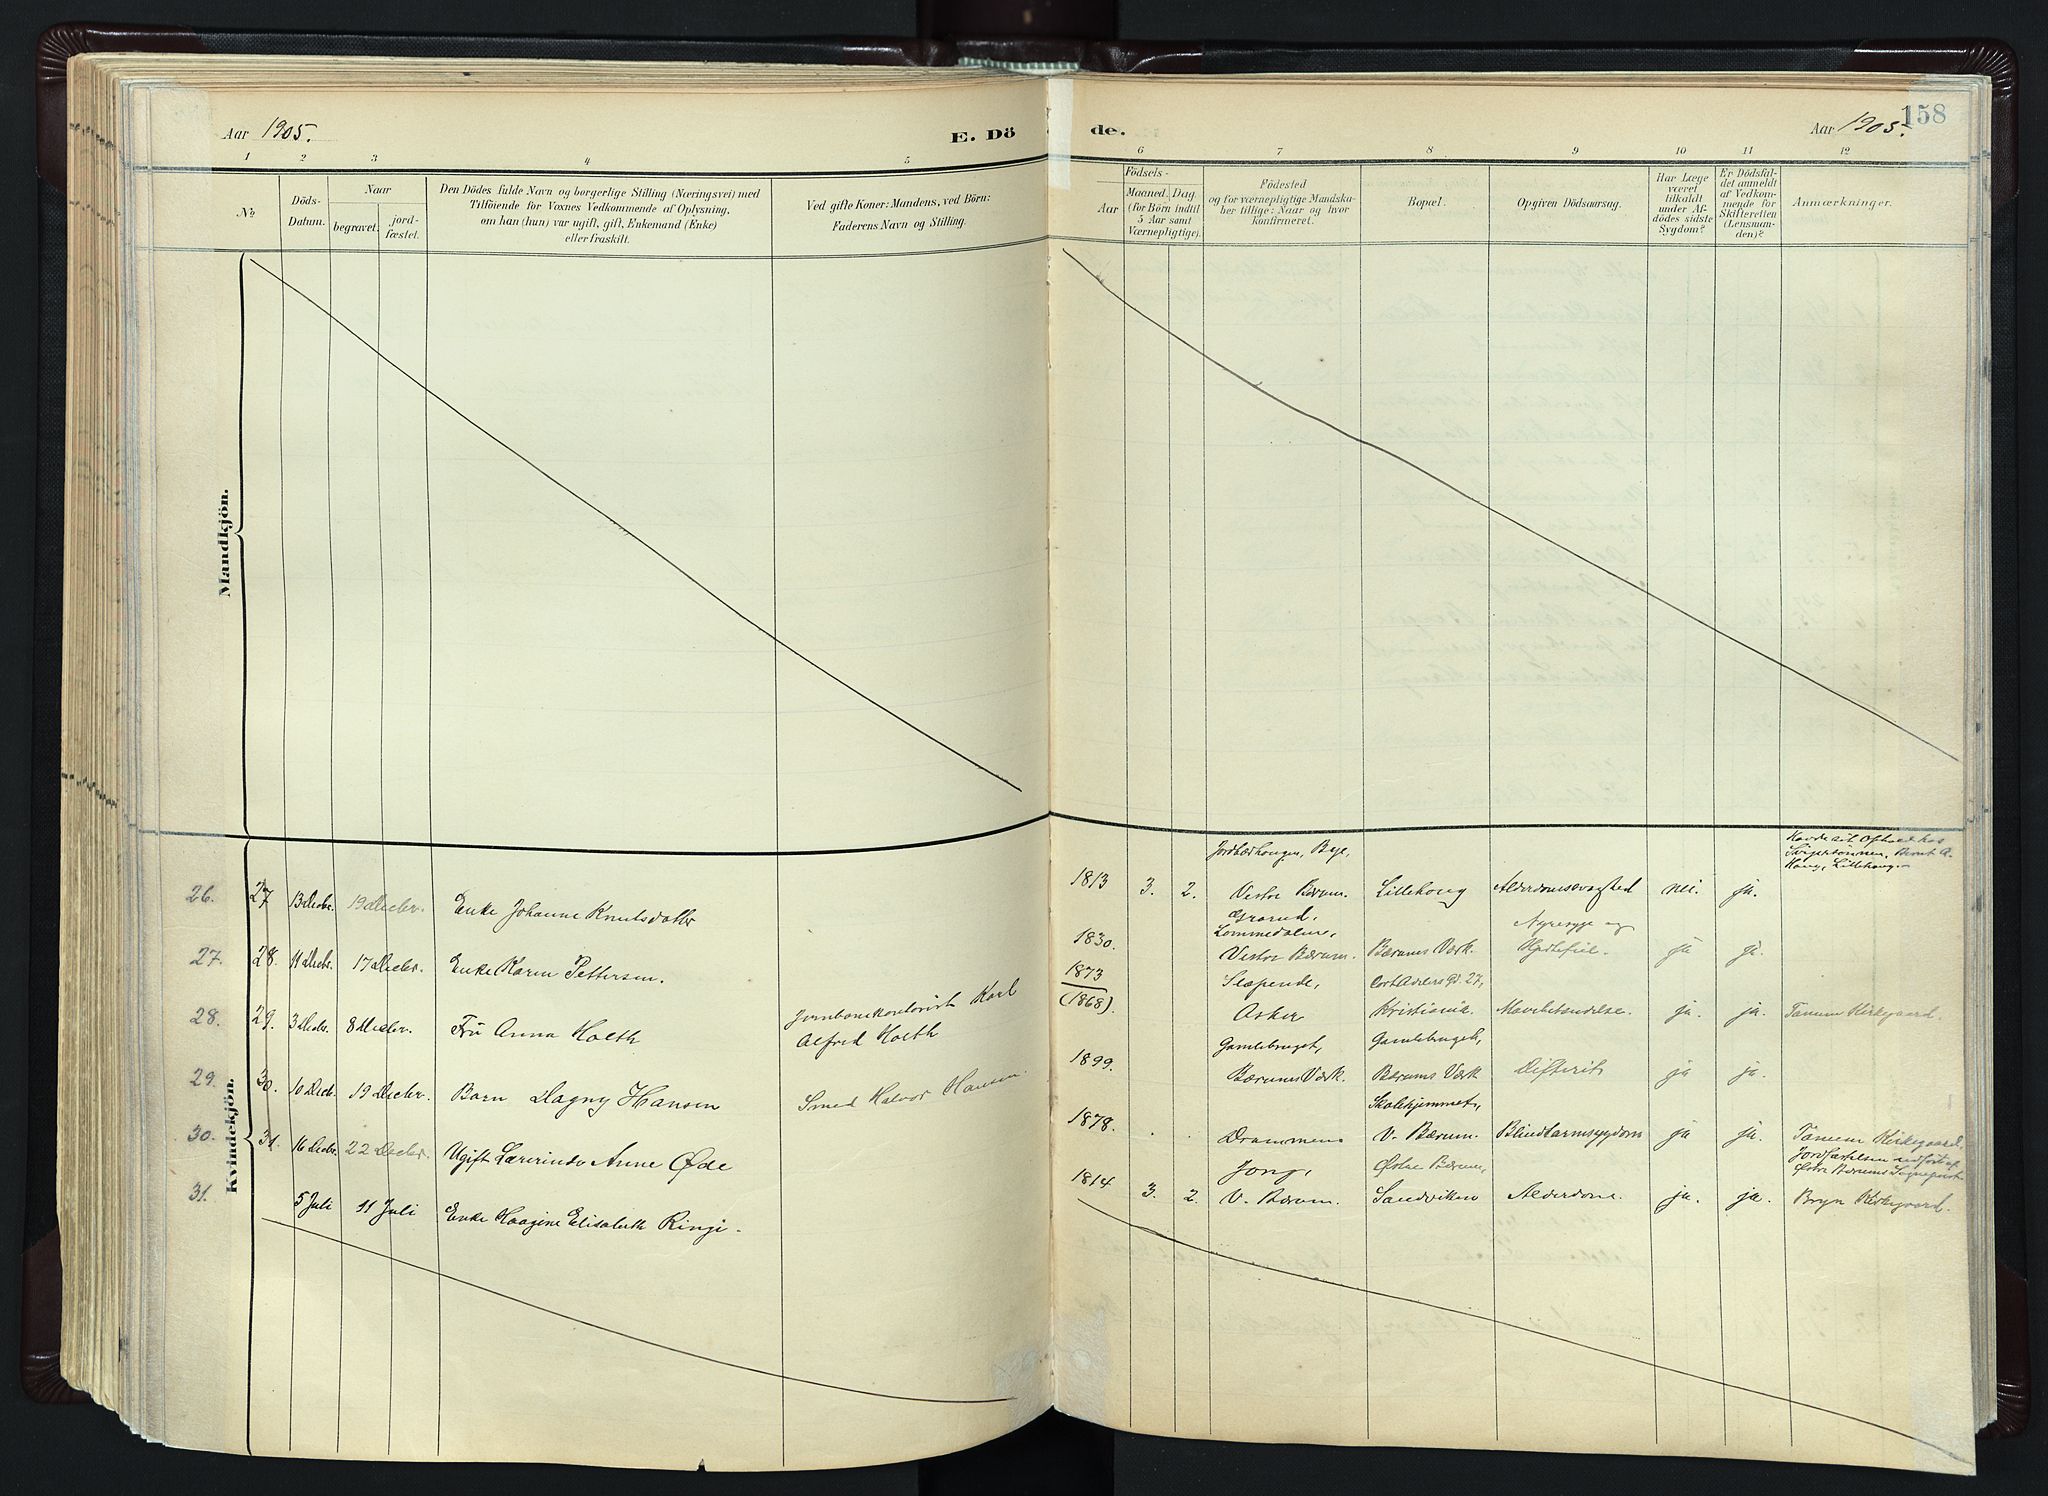 Aar 1905.
E. Dö de.
Aar 1905.
158
1 2 3 4 5 6 7 8 9 10 11 12
№
Döds-
Datum.
Naar
begravet.
jord-
fæstet.
Den Dödes fulde Navn og borgerlige Stilling (Næringsvei) med
Tilföiende for Voxnes Vedkommende af Oplysning,
om han (hun) var ugift, gift, Enkemand (Enke)
eller fraskilt.
Ved gifte Koner: Mandens, ved Börn:
Faderens Navn og Stilling.
Födsels-
Aar
Maaned. Dag.
(for Börn indtil
5 Aar samt
Værnepligtige).
Födested
og for værnepligtige Mandska-
ber tillige: Naar og hvor
konfirmeret.
Bopæl.
Opgiven Dödsaarsag.
Har Læge
været
tilkaldt
under Af-
dödes sidste
Sygdom?
Er Dödsfal-
det anmeldt
af Vedkom-
mende for
Skifteretten
(Lensman-
den)?
Anmærkninger.
Mandkjön.
Kvindekjön.
26. 27 13 Decbr. 19 Decbr. Enke Johanne Knutsdatter
1813 3. 2. Vestre Bærum. Lillehoug Alderdomssvaghed nei. ja.
Lillehoug
27. 28. 11 Decbr. 17 Decbr. Enke Karen Pettersen.
Lommedalene,
1830. Vestre Bærum. Bærums Værk. Nyresyge og
Hjertefeil. ja ja.
28. 29. 3 Decbr. 8 Decbr. Fru Anna Holth
Jernbanekontorist Karl
Alfred Holth
1873
(1868).
Slæpende,
Asker
Cort Adelers Gd. 27,
Kristiania. Mavebetændelse. ja. ja. Tanum Kirkegaard.
29. 30. 10 Decbr. 19 Decbr. Barn Dagny Hansen
Smed Halvor Hansen.
1899. Gamlebruget,
Bærums Værk.
Gamlebruget,
Bærums Værk Difterit ja ja.
30. 31. 16 Decbr. 22 Decbr. Ugift Lærerinde Anne Øde
1878. Drammen
Skolehjemmet,
V. Bærum. Blindtarmsygdom ja ja. Tanum Kirkegaard.
31. 5 Juli 11 Juli Enke Haagine Elisabeth Ringi.
1814 3. 2. Jong,
V. Bærum.
Østre Bærum,
Sandviken Alderdom. ja. ja. Jordfæstelsen udført af
Østre Bærums Sogneprest
Bryn Kirkegaard.